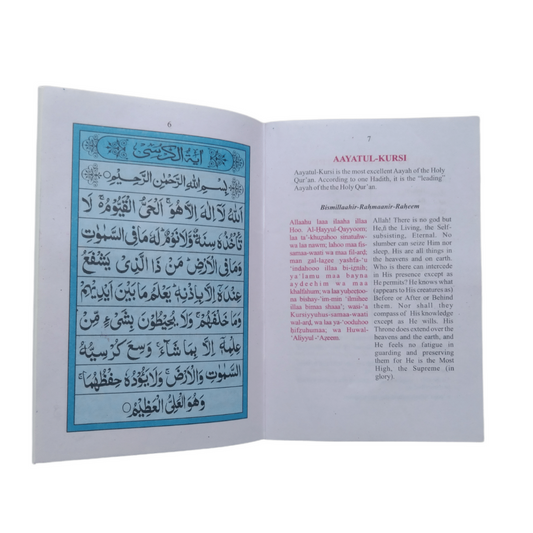 6
اٰیة الکرسی
بِسْمِ اللهِ الرَّحْمٰنِ الرَّحِيْمِ
اَللهُ لَاۤ اِلٰهَ اِلَّا هُوَ ۚ اَلْحَیُّ الْقَیُّوْمُ ۚ لَا
تَاْخُذُهٗ سِنَةٌ وَّلَا نَوْمٌ ؕ لَهٗ مَا فِی السَّمٰوٰتِ
وَمَا فِی الْاَرْضِ ؕ مَنْ ذَا الَّذِیْ یَشْفَعُ
عِنْدَهٗۤ اِلَّا بِاِذْنِهٖ ؕ یَعْلَمُ مَا بَیْنَ اَیْدِیْهِمْ
وَمَا خَلْفَهُمْ ۚ وَلَا یُحِیْطُوْنَ بِشَیْءٍ مِّنْ
عِلْمِهٖۤ اِلَّا بِمَا شَآءَ ۚ وَسِعَ كُرْسِیُّهُ
السَّمٰوٰتِ وَالْاَرْضَ ۚ وَلَا یَـُٔوْدُهٗ حِفْظُهُمَا ۚ
وَهُوَ الْعَلِیُّ الْعَظِیْمُ
7
AAYATUL-KURSI
Aayatul-Kursi is the most excellent Aayah of the Holy
Qur'an. According to one Hadith, it is the "leading"
Aayah of the the Holy Qur'an.
Bismillaahir-Rahmaanir-Raheem
Allaahu laaa ilaaha illaa
Hoo. Al-Hayyul-Qayyioom;
laa ta'-khuguhoo sinatulw-
wa laa nawm; lahoo maa fis-
samaa-waati wa maa fil-ard;
man gal-lagee yashfa-'u
'indahooo illaa bi-ignih;
ya'lamu maa bayna
aydeehim wa maa
khalfahum; wa laa yuheetoo-
na bishay-'im-min 'ilmihee
illaa bimaa shaaa'; wasi-'a
Kursiyyuhus-samaa-waati
wal-ard, wa laa ya-'ooduhoo
hifzuhumaa; wa Huwal-
'Aliyyul-'Azeem.
Allah! There is no god but
He,ô the Living, the Self-
subsisting, Eternal. No
slumber can seize Him nor
sleep. His are all things in
the heavens and on earth.
Who is there can intercede
in His presence except as
He permits? He knows what
(appears to His creatures as)
Before or After or Behind
them. Nor shall they
compass of His knowledge
except as He wills. His
Throne does extend over the
heavens and the earth, and
He feels no fatigue in
guarding and preserving
them for He is the Most
High, the Supreme (in
glory).